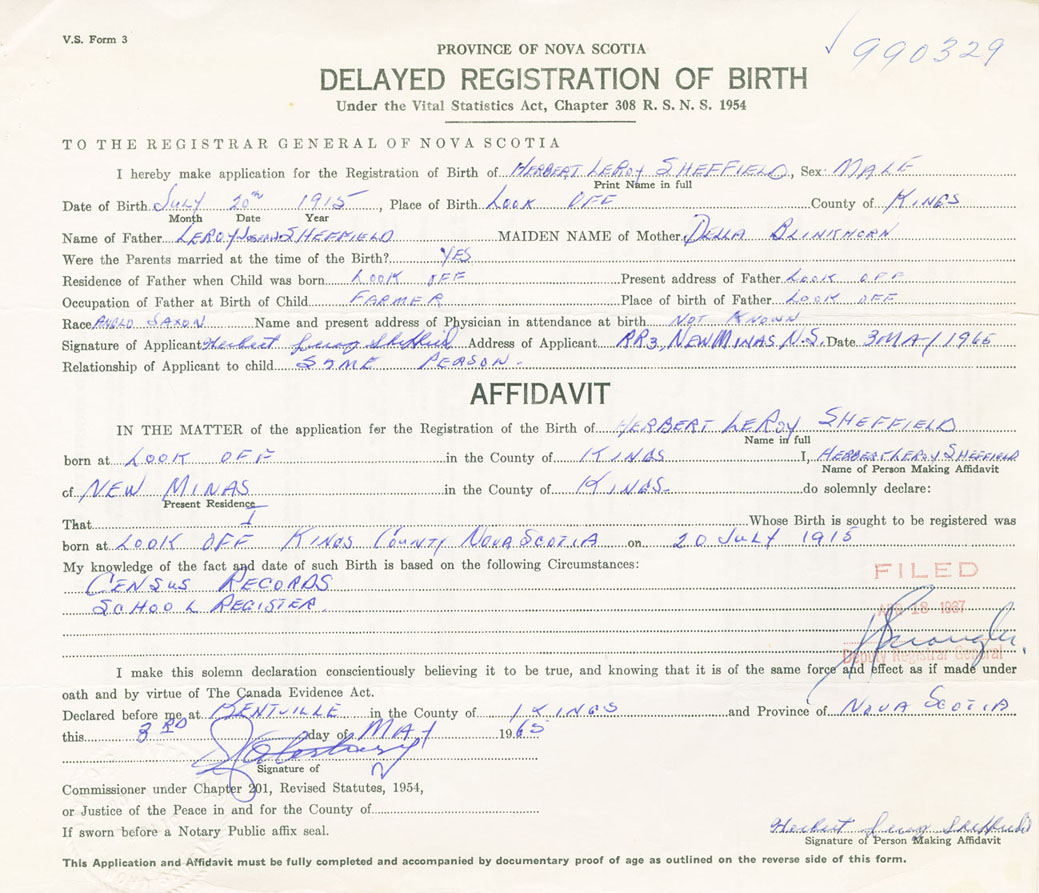 V.S. Form 3
990329
PROVINCE OF NOVA SCOTIA
DELAYED REGISTRATION OF BIRTH
Under the Vital Statistics Act, Chapter 308 R. S. N. S. 1954
TO THE REGISTRAR GENERAL OF NOVA SCOTIA
I hereby make application for the Registration of Birth of HERBERT LEROY SHEFFIELD, Sex: MALE
Print Name in full
Date of Birth JULY 20th 1915, Place of Birth LOOK OFF County of KINGS
Month Date Year
Name of Father LEROY SHEFFIELD MAIDEN NAME of Mother DELLA BLINKHORN
Were the Parents married at the time of the Birth? YES
Residence of Father when Child was born LOOK OFF Present address of Father LOOK OFF
Occupation of Father at Birth of Child FARMER Place of birth of Father LOOK OFF
Race ANGLO SAXON Name and present address of Physician in attendance at birth NOT KNOWN
Signature of Applicant Herbert Leroy Sheffield Address of Applicant RR3, NEW MINAS, N.S. Date 3 MAY 1966
Relationship of Applicant to child SAME PERSON.
AFFIDAVIT
IN THE MATTER of the application fer the Registration of the Birth of HERBERT LEROY SHEFFIELD
Name in full
born at LOOK OFF in the County of KINGS I, HERBERT LEROY SHEFFIELD
Name of Person Making Affidavit
of NEW MINAS in the County of KINGS. do solemnly declare:
Present Residence
That I Whose Birth is sought to be registered was
born at LOOK OFF KINGS COUNTY NOVA SCOTIA on 20 JULY 1915
My knowledge of the fact and date of such Birth is based on the following Circumstances:
CENSUS RECORDS
SCHOOL REGISTER.
FILED
18 1967
Deputy Registrar General
I make this solemn declaration conscientiously believing it to be true, and knowing that it is of the same force and effect as if made under
oath and by virtue of The Canada Evidence Act.
Declared before me at KENTVILLE in the County of KINGS and Province of NOVA SCOTIA
this 3RD day of MAY 1965
Signature of
Commissioner under Chapter 201, Revised Statutes, 1954,
or Justice of the Peace in and for the County of
If sworn before a Notary Public affix seal.
Herbert Leroy Sheffield
Signature of Person Making Affidavit
This Application and Affidavit must be fully completed and accompanied by documentary proof of age as outlined on the reverse side of this form.